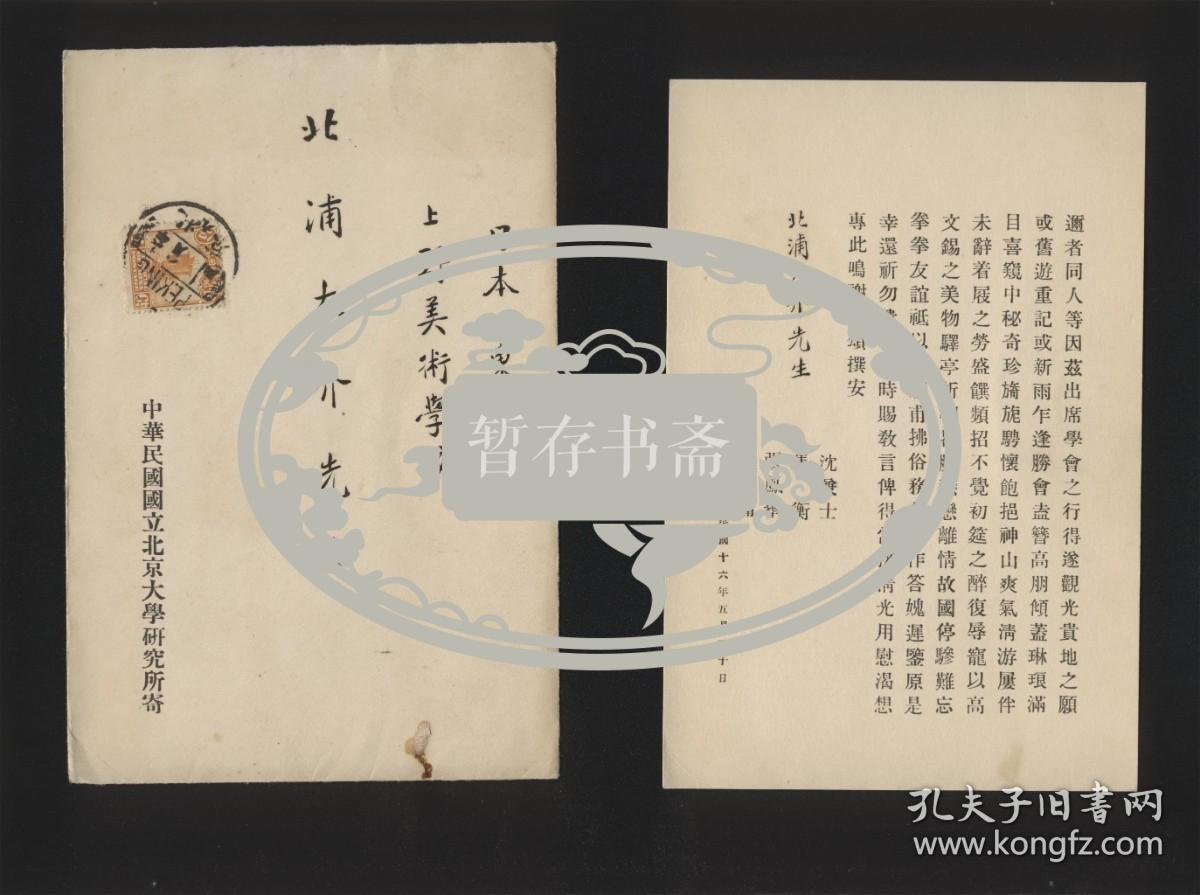 日本
上野美術學
北浦大介先
PEKING
中華民國國立北京大學研究所寄
邇者同人等因茲出席學會之行得遂觀光貴地之願
或舊遊重記或新雨乍逢勝會盍簪高朋傾蓋琳琅滿
目喜窺中秘奇珍旖旎騁懷飽挹神山爽氣清游屢伴
未辭着屐之勞盛饌頻招不覺初筵之醉復辱寵以高
文錫之美物驛亭 戀離情故國停驂難忘
拳拳友誼祗以 甫拂俗務 作答媿遲鑒原是
幸還祈勿 時賜敎言俾得 清光用慰渴想
專此鳴謝 頌撰安
北浦 介先生
沈兼士
衡
國十六年五月 十日
暂存书斋
孔夫子旧书网
www.kongfz.com